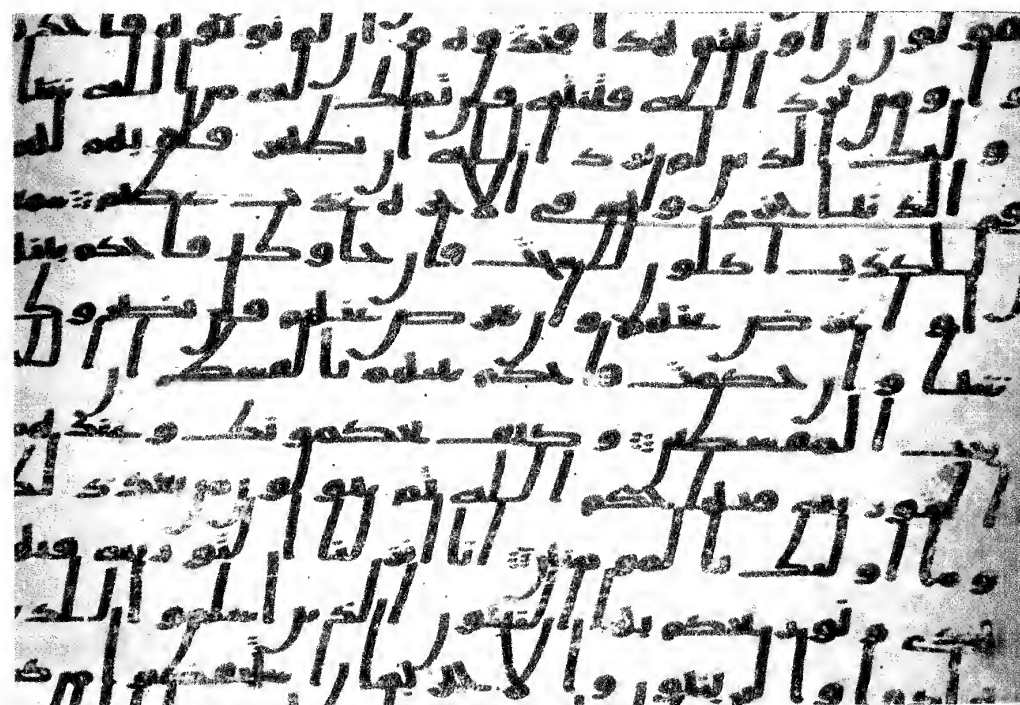 يقولون ان اوتيتم هذا فخذوه وان لم توتوه فاحذر
وا ومن يرد الله فتنته فلن تملك له من الله شيا
اولئك الذين لم يرد الله ان يطهر قلوبهم لهم
فى الدنيا خزى ولهم فى الاخرة عذاب عظيم سمعو
ن للكذب اكلون للسحت فان جاوك فاحكم بينهم
او اعرض عنهم وان تعرض عنهم فلن يضروك
شيا وان حكمت فاحكم بينهم بالقسط ان الله
يحب المقسطين وكيف يحكمونك وعندهم
التورية فيها حكم الله ثم يتولون من بعد ذلك
وما اولئك بالمومنين انا انزلنا التورية فيها
هدى ونور يحكم بها النبيون الذين اسلموا للذين
هادوا والربنيون والاحبار بما استحفظوا من